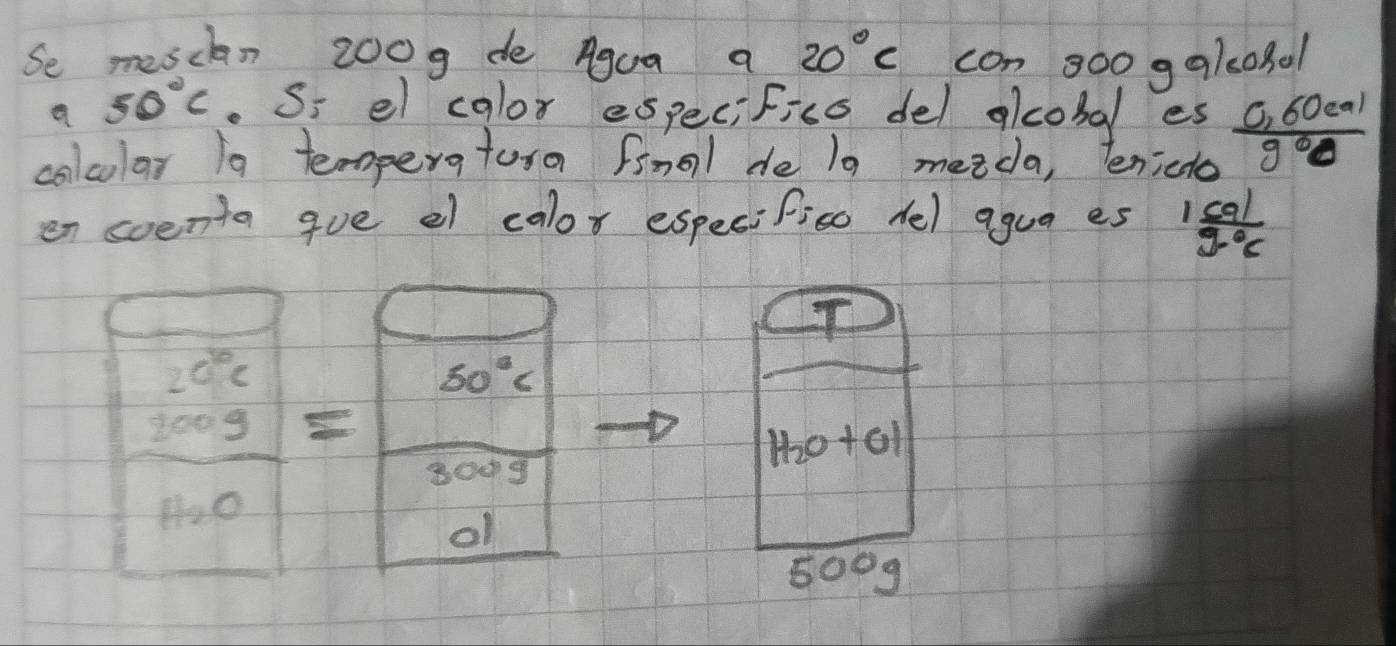 Se mesclan 200g de Agua a 20°C con 300 g alcohol
a 50°C. Si el calor especifico del alcohol es 0,60cal/g°C
calcular la temperatura final de la mezcla, teniedo
en cuenta que el calor especifico del agua es 1 cal/g°C
20°C
200g
H2O
=
50°C
300g
ol
→
T
H2O+Ol
500g